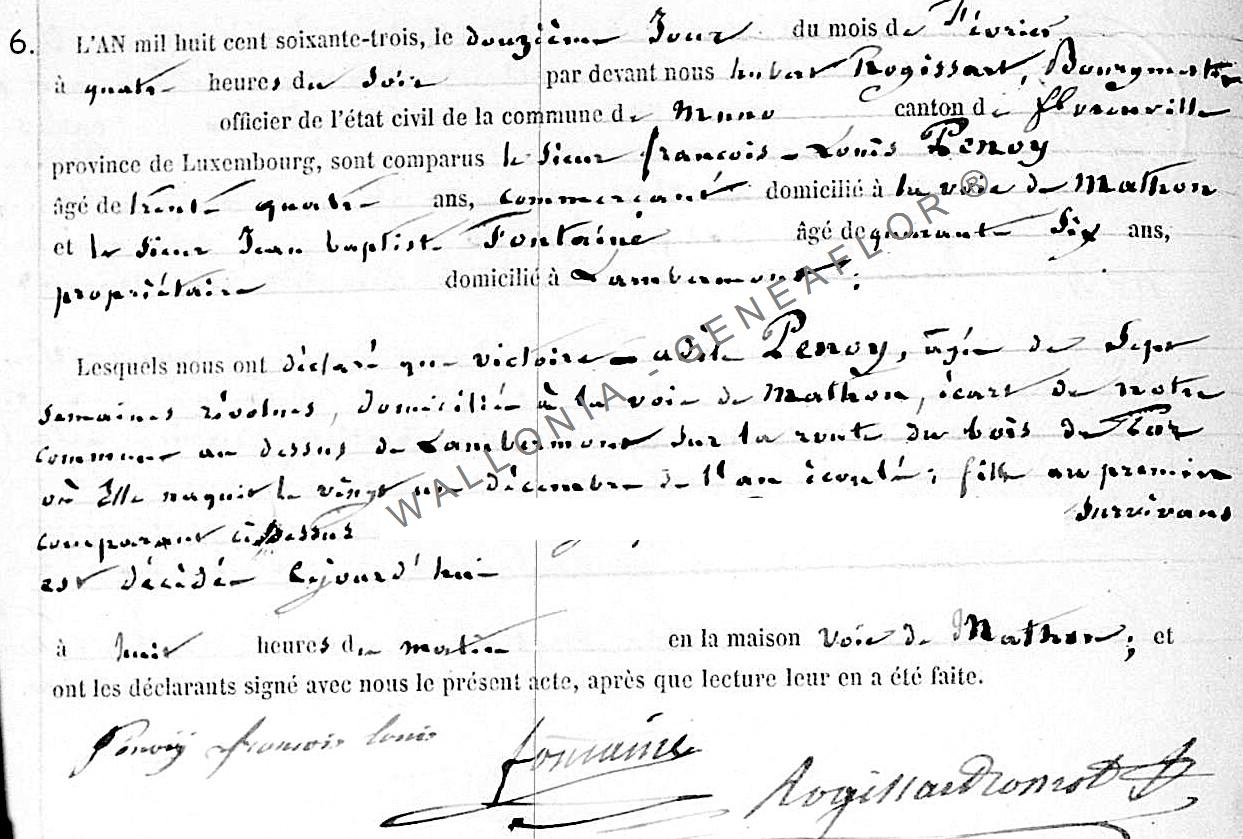 6. L'AN mil huit cent soixante-trois, le douzième Jour du mois de février
à quatre heures du Soir par devant nous hubert Rogissart, Bourgmestre
officier de l'état civil de la commune de Muno canton de florenville
province de Luxembourg, sont comparus le Sieur françois-Louis Penoy
âgé de trente quatre ans, commerçant domicilié à la voie de Mathon
et le Sieur Jean baptiste Fontaine âgé de quarante Six ans,
propriétaire domicilié à Lambermont.
Lesquels nous ont déclaré que victoire-adèle Penoy, âgée de Sept
Semaines révolues, domiciliée à la voie de Mathon, écart de notre
commune au dessus de Lambermont Sur la route du bois de
où Elle naquit le vingt un décembre de l'an écoulé; fille au premier
comparant ci dessus Survivans
est décédée aujourd'hui
à huit heures du matin en la maison voie de Mathon; et
ont les déclarants signé avec nous le présent acte, après que lecture leur en a été faite.
Penoy françois louis fontaine
WALLONIA - GENEAFLOR ®